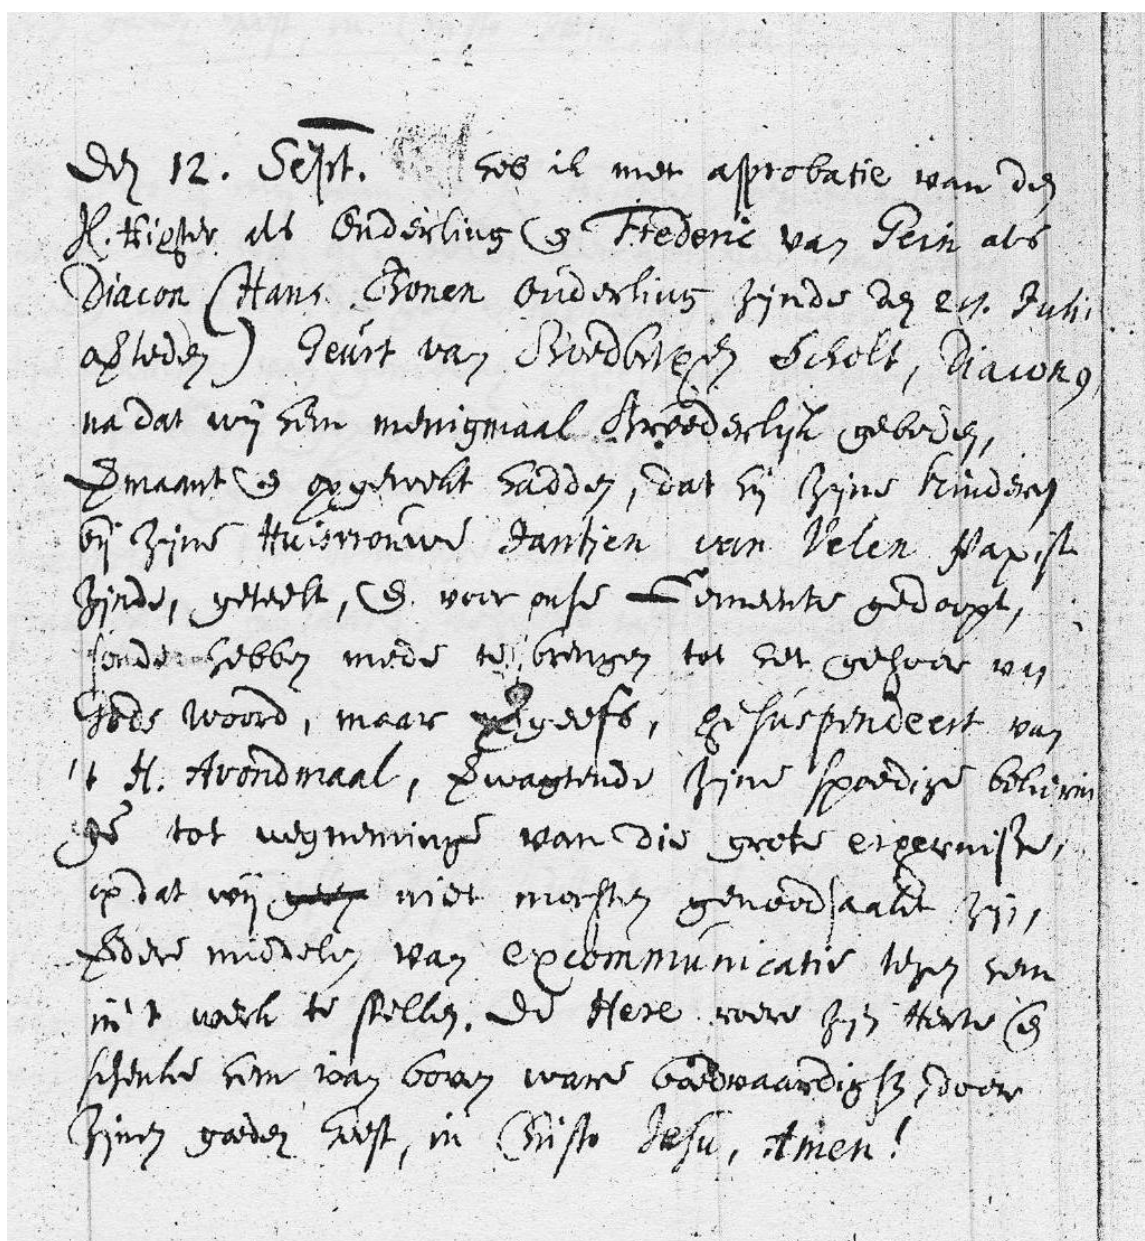 Den 12. Sept. heb ik met approbatie van den
H. Rigter als Ouderling en Frederic van Gein als
Diacon (Hans Bonen Ouderling zijnde den 21. Juli
overleden) Geurt van Scholt, Diacon,
na dat wij hem menigmaal Broederlijk gebeden,
vermaant en opgewekt hadden, dat hij zijne kinderen
bij zijne Huisvrouwe Jantjen van Velen Papist
zijnde, geteelt, en voor onse Gemeente gedoopt,
soude hebben mede te brengen tot het gehoor van
Gods Woord, maar vergeefs, gesuspendeert van
't H. Avondmaal, verwagtende zijne spoedige bekerin
ge tot wegneminge van die grote ergernisse,
op dat wij geen niet mogten genoodsaakt zijn,
verdere middelen van excommunicatie tegen hem
in 't werk te stellen. De Here roere zijn Herte en
schenke hem van boven ware boetvaardigh., door
zijnen goeden Geest, in Christo Jesu, Amen!